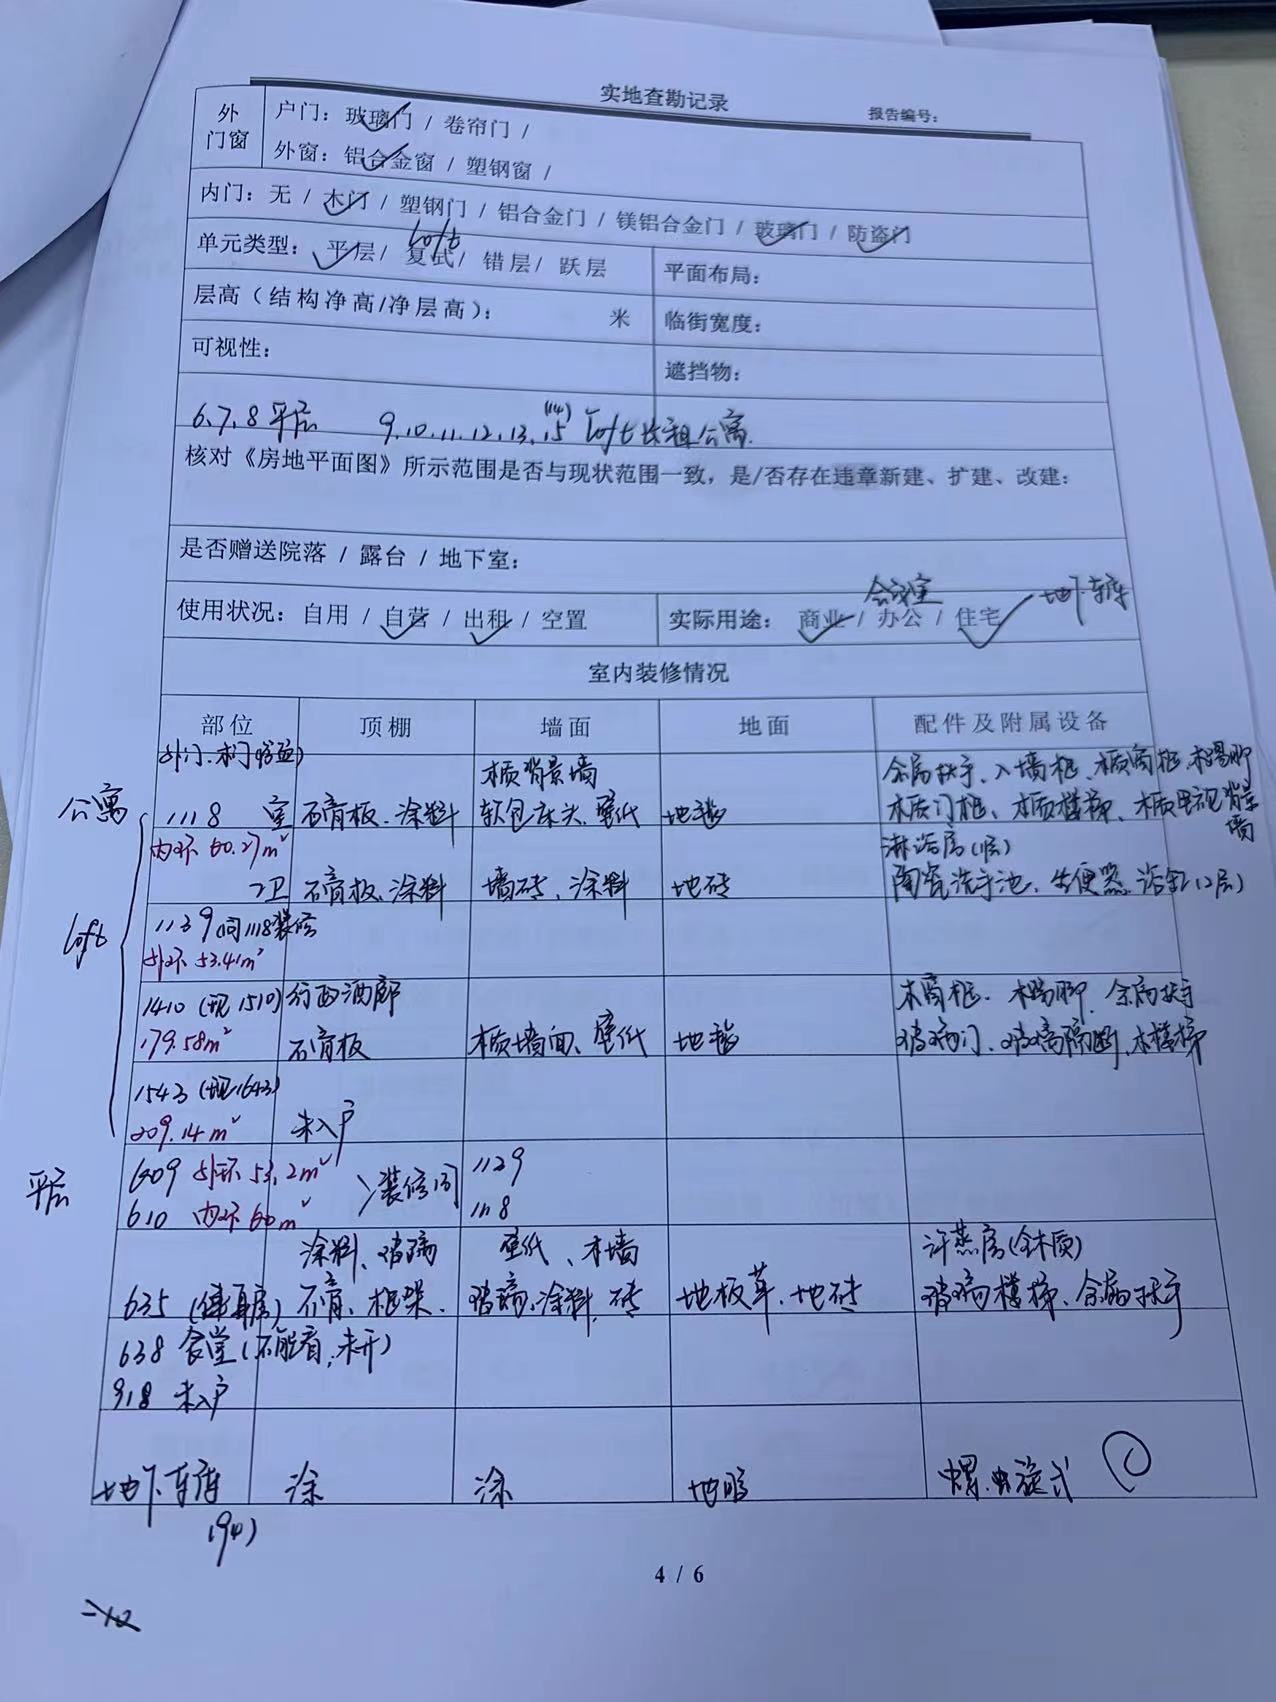 实地查勘记录
报告编号：
外门窗
户门：玻璃门 / 卷帘门 /
外窗：铝合金窗 / 塑钢窗 /
内门：无 / 木门 / 塑钢门 / 铝合金门 / 镁铝合金门 / 玻璃门 / 防盗门
loft
单元类型：平层 / 复式 / 错层 / 跃层
平面布局：
层高（结构净高/净层高）： 米
临街宽度：
可视性：
遮挡物：
6、7、8平层 9、10、11、12、13、15(14) loft 长租公寓
核对《房地平面图》所示范围是否与现状范围一致，是/否存在违章新建、扩建、改建：
是否赠送院落 / 露台 / 地下室：
会议室 地下车库
使用状况：自用 / 自营 / 出租 / 空置
实际用途：商业 / 办公 / 住宅
室内装修情况
部位 顶棚 墙面 地面 配件及附属设备
外门、木门(防盗) 木质背景墙 金属扶手、入墙柜、木质窗框、木踢脚
公寓 1118 室 石膏板、涂料 软包床头、壁纸 地毯 木质门框、木质楼梯、木质电视背景墙
内环 60.27m² 淋浴房(1层)
卫 石膏板、涂料 墙砖、涂料 地砖 陶瓷洗手池、坐便器、浴缸(2层)
loft
1139 (同1118装修
外环 53.41m²
1410 (现1510) 行西酒廊 木窗框、木踢脚、金属扶手
179.58m² 石膏板 木质墙面、壁纸 地毯 玻璃门、玻璃隔断、木楼梯
1543 (现1643)
209.14m² 未入户
平层
609 外环 53.2m² 装修同 1129
610 内环 60m² 1118
涂料、玻璃 壁纸、木墙 汗蒸房(全木质)
635 (健身房) 石膏、框架、 玻璃、涂料、砖 地板革、地砖 玻璃楼梯、金属扶手
638 食堂(不能看,未开)
918 未入户
地下车库 涂 涂 地胶 螺旋式
(941)
4 / 6